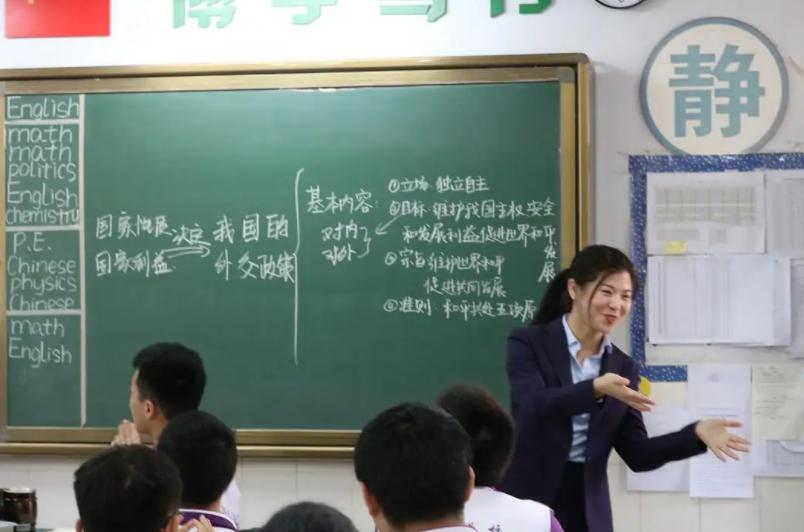 静
English
math
math
politics
English
chemistry
P.E.
Chinese
physics
Chinese
math
English
国家性质
国家利益
决定
我国的
外交政策
基本内容:
对内
对外
①立场:独立自主
②目标:维护我国主权安全
和发展利益促进世界和平
发展
③宗旨:维护世界和平
促进共同发展
④准则:和平共处五项原